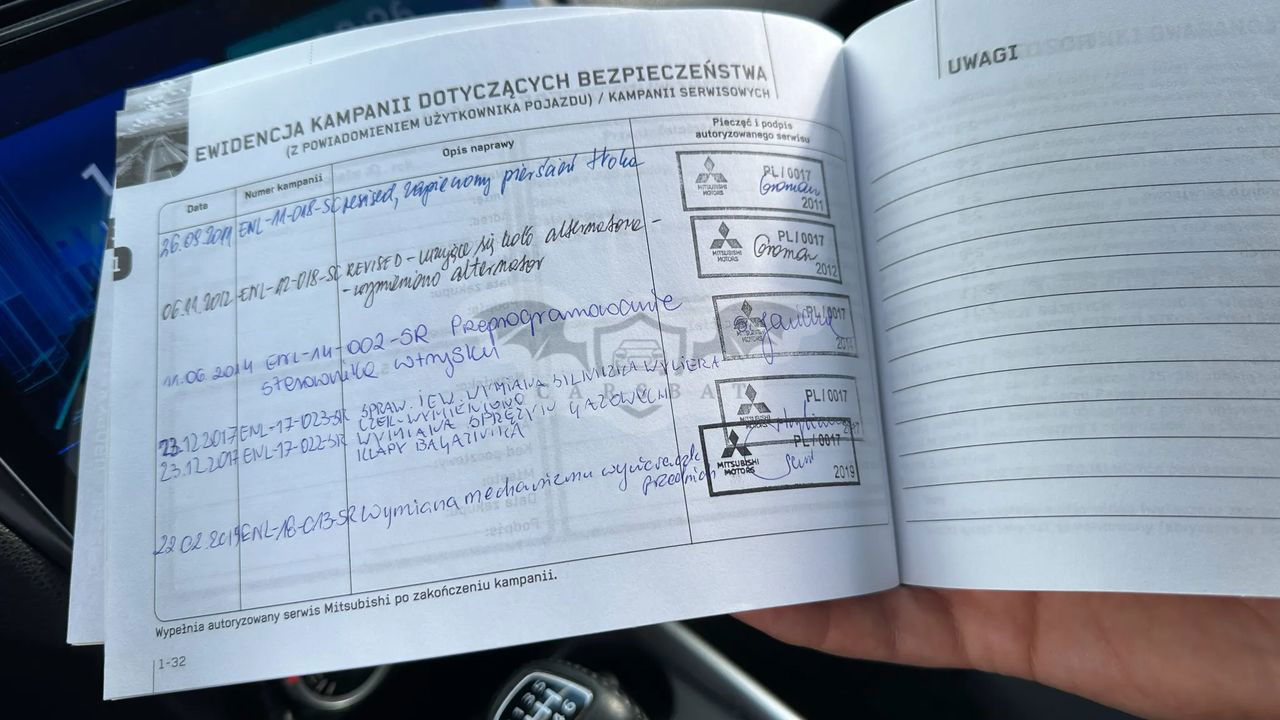 EWIDENCJA KAMPANII DOTYCZĄCYCH BEZPIECZEŃSTWA
(Z POWIADOMIENIEM UŻYTKOWNIKA POJAZDU) / KAMPANII SERWISOWYCH
Data
Numer kampanii
Opis naprawy
Pieczęć i podpis
autoryzowanego serwisu
26.09.2011 ENL-11-018-SC revised, zapieczony pierścień tłoka
MITSUBISHI
MOTORS
PL/0017
2011
06.11.2012 ENL-12-018-SC REVISED - urwące się koło alternatora -
- wymieniono alternator
MITSUBISHI
MOTORS
PL/0017
2012
11.06.2014 ENL-14-002-SR Przeprogramowanie
sterownika wtrysku
PL/0017
23.12.2017 ENL-17-023-SR SPRAW. I EW. WYMIANA SILNICZKA WYCIERA
CZEK-WYMIENIONO
23.12.2017 ENL-17-022-SR WYMIANA SPRĘŻYN GAZOWYCH
KLAPY BAGAŻNIKA
PL/0017
22.02.2019 ENL-18-013-SR Wymiana mechanizmu wycieraczek
przednich
MITSUBISHI
MOTORS
PL/0017
2019
CARSBAT
Wypełnia autoryzowany serwis Mitsubishi po zakończeniu kampanii.
1-32
1
UWAGI